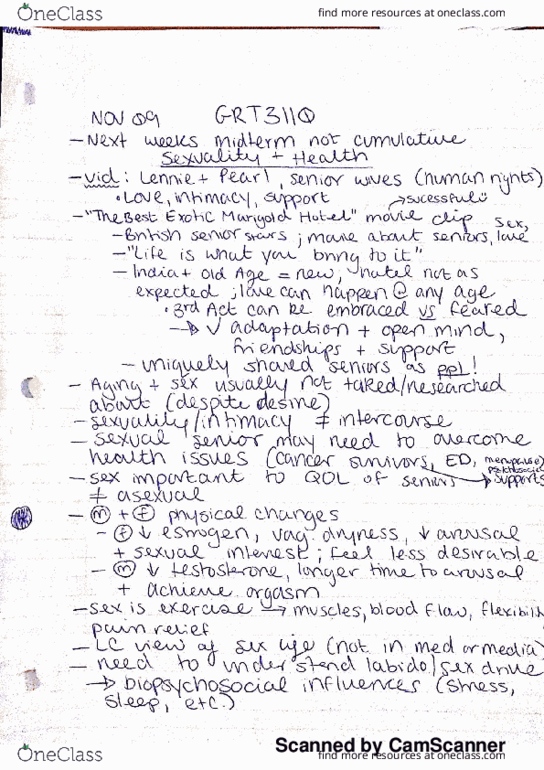 OneClass
find more resources at oneclass.com
NOV 09 GRT3110
- Next weeks midterm not cumulative
Sexuality + Health
- vid: Lennie + Pearl, senior wives (human rights)
• Love, intimacy, support → sucessful
- "The Best Exotic Marigold Hotel" movie clip
- British senior stars ; movie about seniors, love sex,
- "Life is what you bring to it"
- India + old Age = new, hotel not as
expected ; love can happen @ any age
• 3rd Act can be embraced vs feared
→ ✓ adaptation + open mind,
friendships + support
- uniquely shared seniors as ppl!
- Aging + sex usually not talked/researched
about (despite desire)
- sexuality/intimacy ≠ intercourse
- sexual senior may need to overcome
health issues (cancer survivors, ED, menopause)
- sex important to QOL of seniors → psychosocial supports
≠ asexual
- (m) + (f) physical changes
- (f) ↓ estrogen, vag. dryness, ↓ arousal
+ sexual interest ; feel less desirable
- (m) ↓ testosterone, longer time to arousal
+ achieve orgasm
- sex is exercise → muscles, blood flow, flexibili
pain relief
- LC view of sex life (not in med or media)
- need to understand labido/sex drive
→ biopsychosocial influences (stress,
sleep, etc.)
Scanned by CamScanner
OneClass
find more resources at oneclass.com